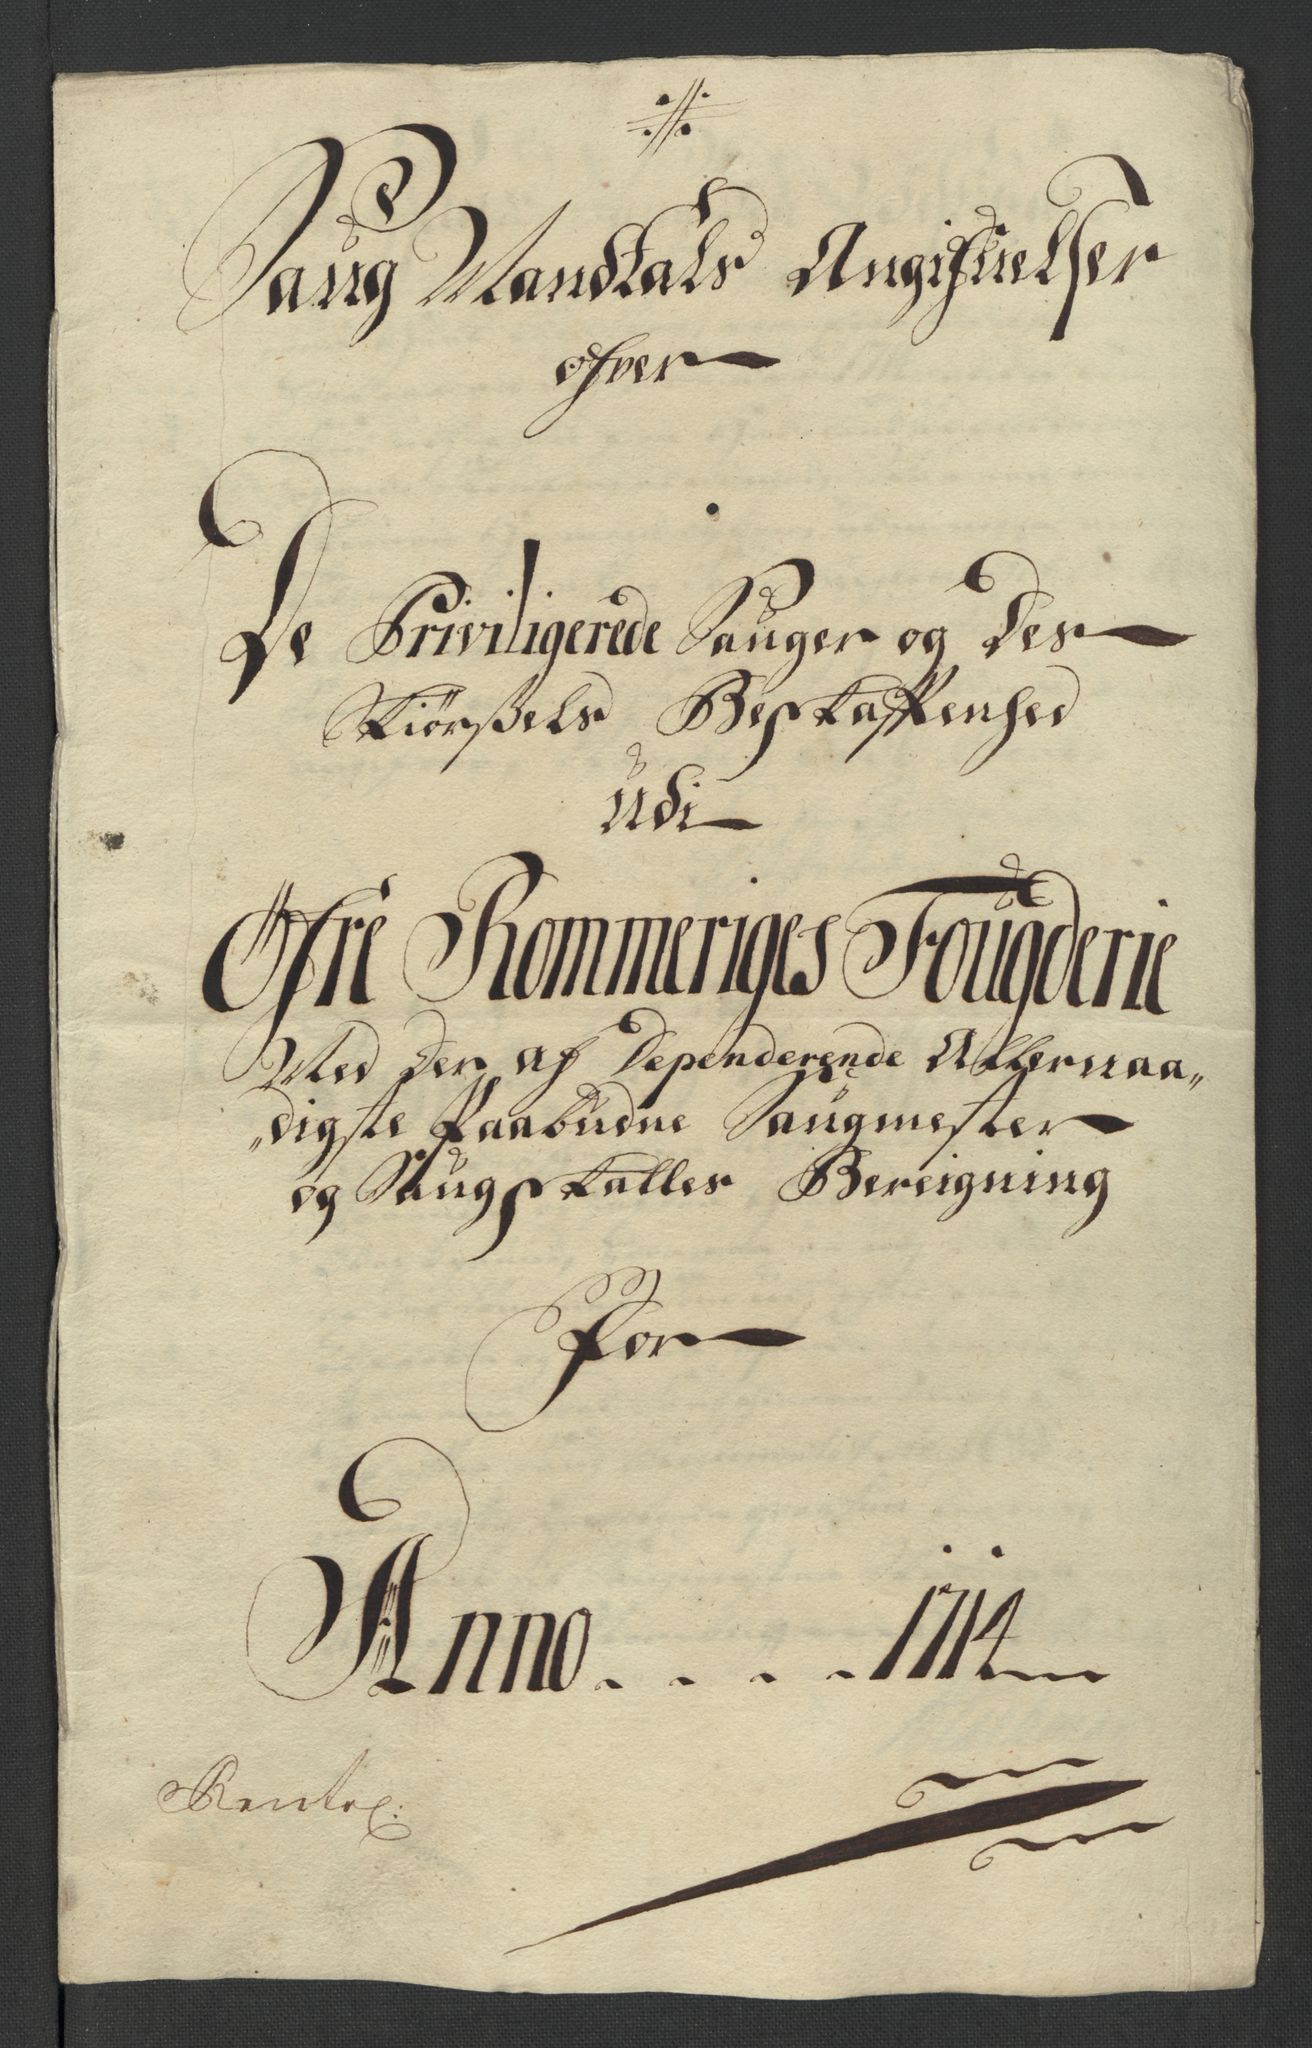 Saug Mandtals Angifvelser
ofver
De Priviligerede Sauger og Des
Skiørßels Beskaffenhed
udi
Øfre Rommeriges Fougderie
Med Der af Dependerende Allernaa„
„digste Paabudne Saugmester
og Saugskatters Bereigning
For
Anno . . . . 1714